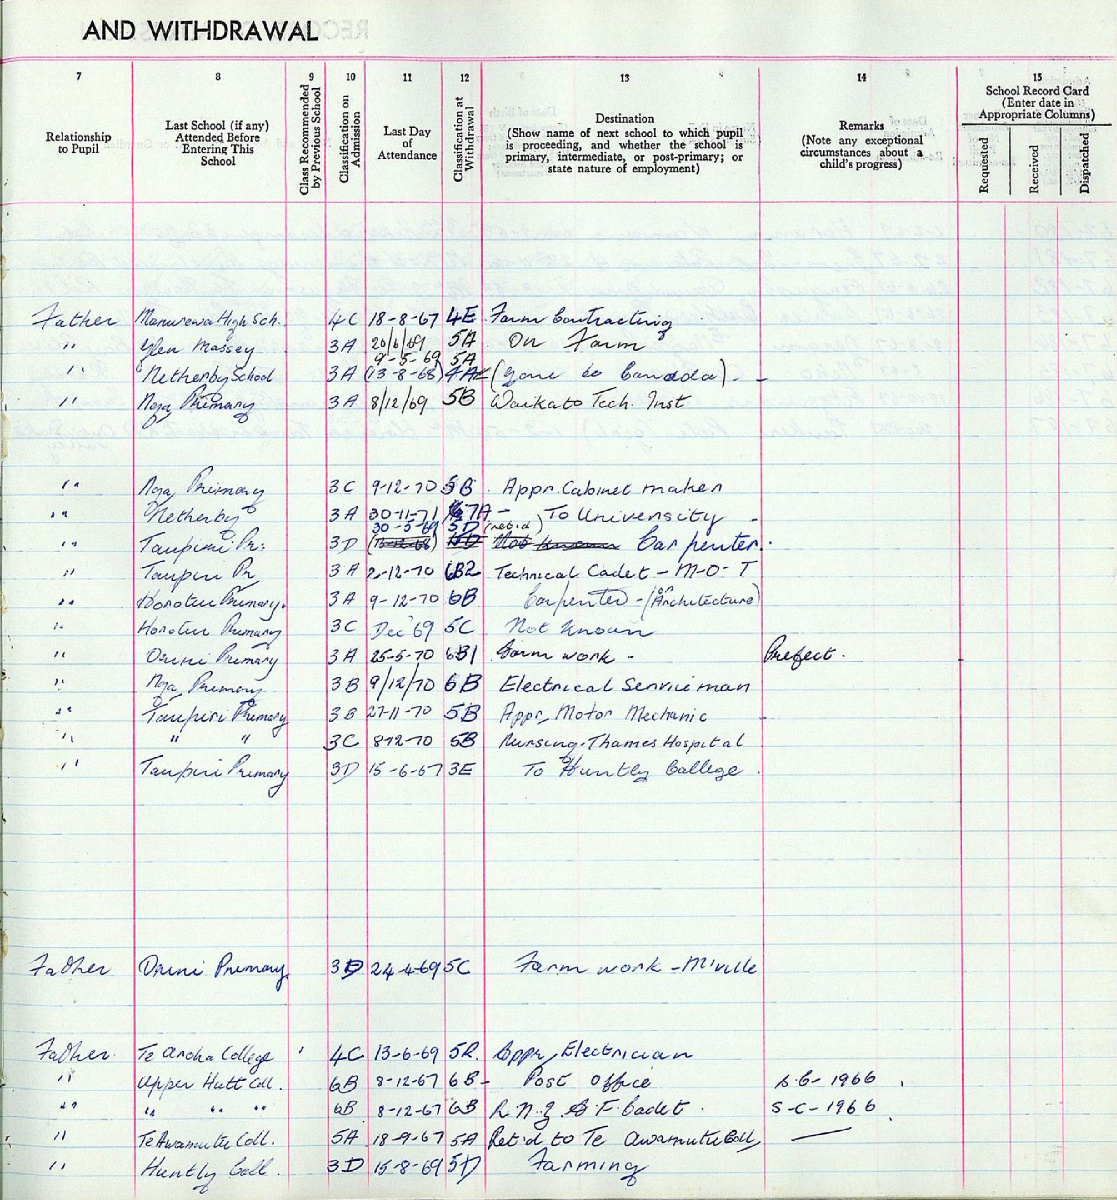 AND WITHDRAWAL
7 8 9 10 11 12 13 14 15
Relationship to Pupil
Last School (if any) Attended Before Entering This School
Class Recommended by Previous School
Classification on Admission
Last Day of Attendance
Classification at Withdrawal
Destination (Show name of next school to which pupil is proceeding, and whether the school is primary, intermediate, or post-primary; or state nature of employment)
Remarks (Note any exceptional circumstances about a child's progress)
School Record Card (Enter date in Appropriate Columns)
Requested Received Dispatched
Father Manurewa High Sch. 4C 18-8-67 4E Farm Contracting
" Glen Massey 3A 20/6/69 5A On Farm
9-5-69 5A
" Netherby School 3A (13-8-68) 4A (gone to Canada).
" Nga Primary 3A 8/12/69 5B Waikato Tech. Inst
" Nga Primary 3C 9-12-70 5B Appr. Cabinet maker
" Netherby 3A 30-11-71 7A - To University
30-5-69 5D
" Taupiri Pr. 3D Not known Carpenter.
" Taupiri Pr 3A 2-12-70 6B2 Technical Cadet - M-O-T
" Horotiu Primary. 3A 9-12-70 6B Carpenter - (or Architecture)
" Horotiu Primary 3C Dec '69 5C Not known
" Orini Primary 3A 25-5-70 6B1 Farm work - Prefect.
" Nga Primary 3B 9/12/70 6B Electrical Serviceman
" Taupiri Primary 3B 27-11-70 5B Appr. Motor Mechanic
" " " 3C 8-12-70 5B Nursing. Thames Hospital
" Taupiri Primary 3D 15-6-67 3E To Huntly College.
Father Orini Primary 3D 24-4-69 5C Farm work -
Father. Te Aroha College 4C 13-6-69 5R. Appr. Electrician
" Upper Hutt Coll. 6B 8-12-67 6B - Post Office S.C- 1966
" " " " 6B 8-12-67 6B R.N.Z.A.F. Cadet. S-C- 1966
" Te Awamutu Coll. 5A 18-9-67 5A Ret'd to Te Awamutu Coll,
" Huntly Coll. 3D 15-8-69 5D Farming